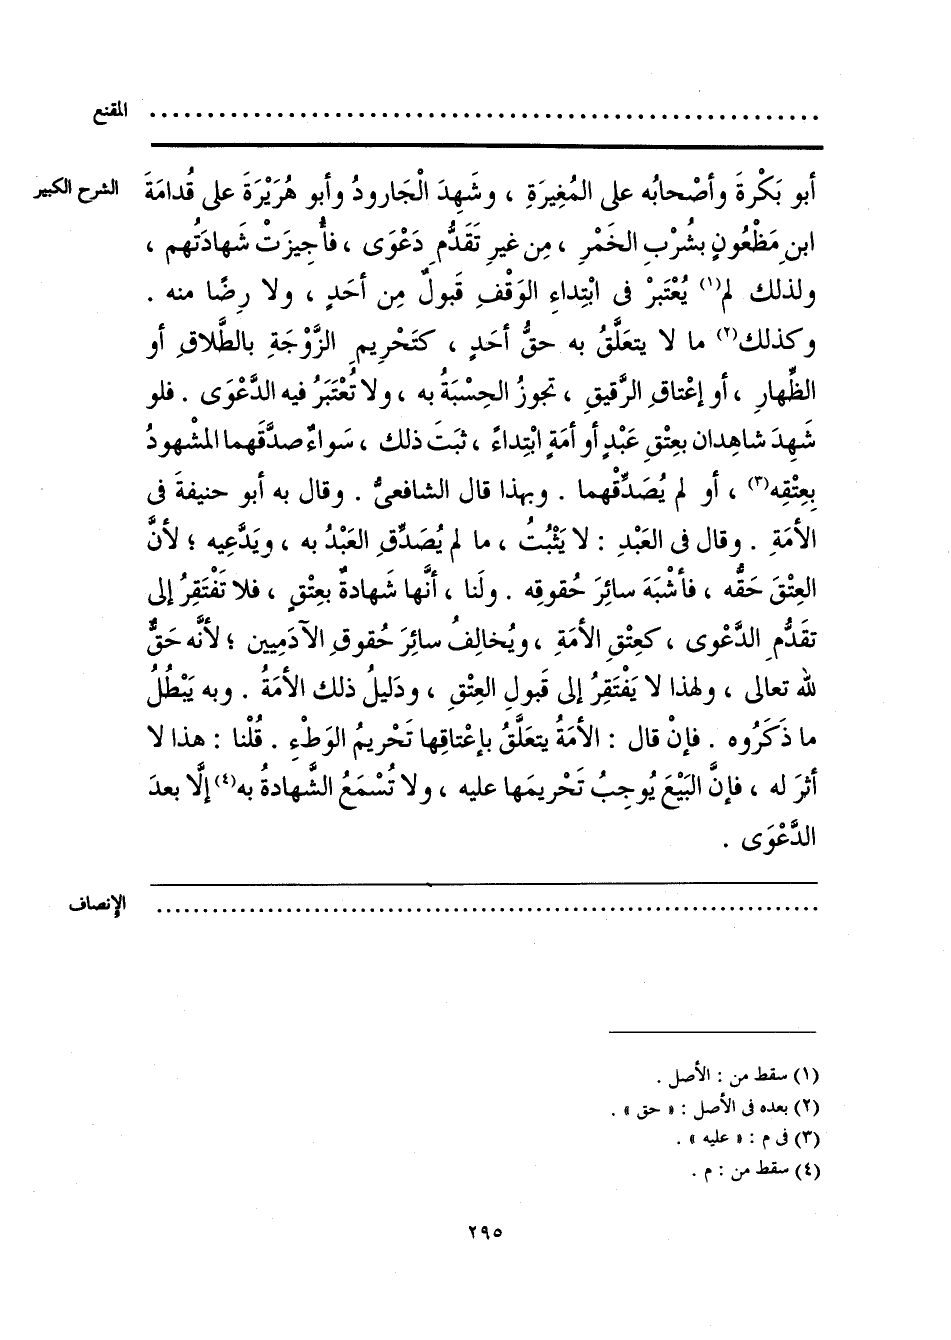 المقنع ................................................
الشرح الكبير أبو بَكْرةَ وأصْحابُه على المُغِيرَةِ ، وشَهِدَ الْجَارودُ وأبو هُرَيْرَةَ على قُدامَةَ
ابنِ مَظْعُونٍ بشُرْبِ الخَمْرِ ، مِن غيرِ تَقَدُّمِ دَعْوَى ، فأُجِيزَتْ شَهادَتُهم ،
ولذلك لم(١) يُعْتَبرْ فى ابْتِداءِ الوَقْفِ قَبولٌ مِن أحَدٍ ، ولا رِضًا منه .
وكذلك(٢) ما لا يتعَلَّقُ به حقُّ أحَدٍ ، كتَحْرِيمِ الزَّوْجَةِ بالطَّلاقِ أو
الظِّهارِ ، أو إعْتاقِ الرَّقيقِ ، تجوزُ الحِسْبَةُ به ، ولا تُعْتَبَرُ فيه الدَّعْوَى . فلو
شَهِدَ شاهِدان بعِتْقِ عَبْدٍ أو أمَةٍ ابْتِداءً ، ثبَتَ ذلك ، سَواءٌ صدَّقَهما المَشْهودُ
بعِتْقِه(٣) ، أو لم يُصَدِّقْهما . وبهذا قال الشافعىُّ . وقال به أبو حنيفةَ فى
الأمَةِ . وقال فى العَبْدِ : لا يَثْبُتُ ، ما لم يُصَدِّقِ العَبْدُ به ، ويَدَّعِيه ؛ لأنَّ
العِتْقَ حَقُّه ، فأشْبَهَ سائِرَ حُقوقِه . ولَنا ، أنَّها شَهادةٌ بعِتْقٍ ، فلا تَفْتَقِرُ إلى
تقَدُّمِ الدَّعْوى ، كعِتْقِ الأمَةِ ، ويُخالِفُ سائرَ حُقوقِ الآدَمِيين ؛ لأنَّه حَقٌّ
للهِ تعالى ، ولهذا لا يَفْتَقِرُ إلى قَبولِ العِتْقِ ، ودَليلُ ذلك الأمَةُ . وبه يَبْطُلُ
ما ذَكَرُوه . فإنْ قال : الأمَةُ يتعَلَّقُ بإعْتاقِها تَحْريمُ الوَطْءِ . قُلْنا : هذا لا
أثرَ له ، فإنَّ البَيْعَ يُوجِبُ تَحْريمَها عليه ، ولا تُسْمَعُ الشَّهادةُ به(٤) إلَّا بعدَ
الدَّعْوَى .
الإنصاف ................................................
(١) سقط من : الأصل .
(٢) بعده فى الأصل : « حق » .
(٣) فى م : « عليه » .
(٤) سقط من : م .
٢٩٥